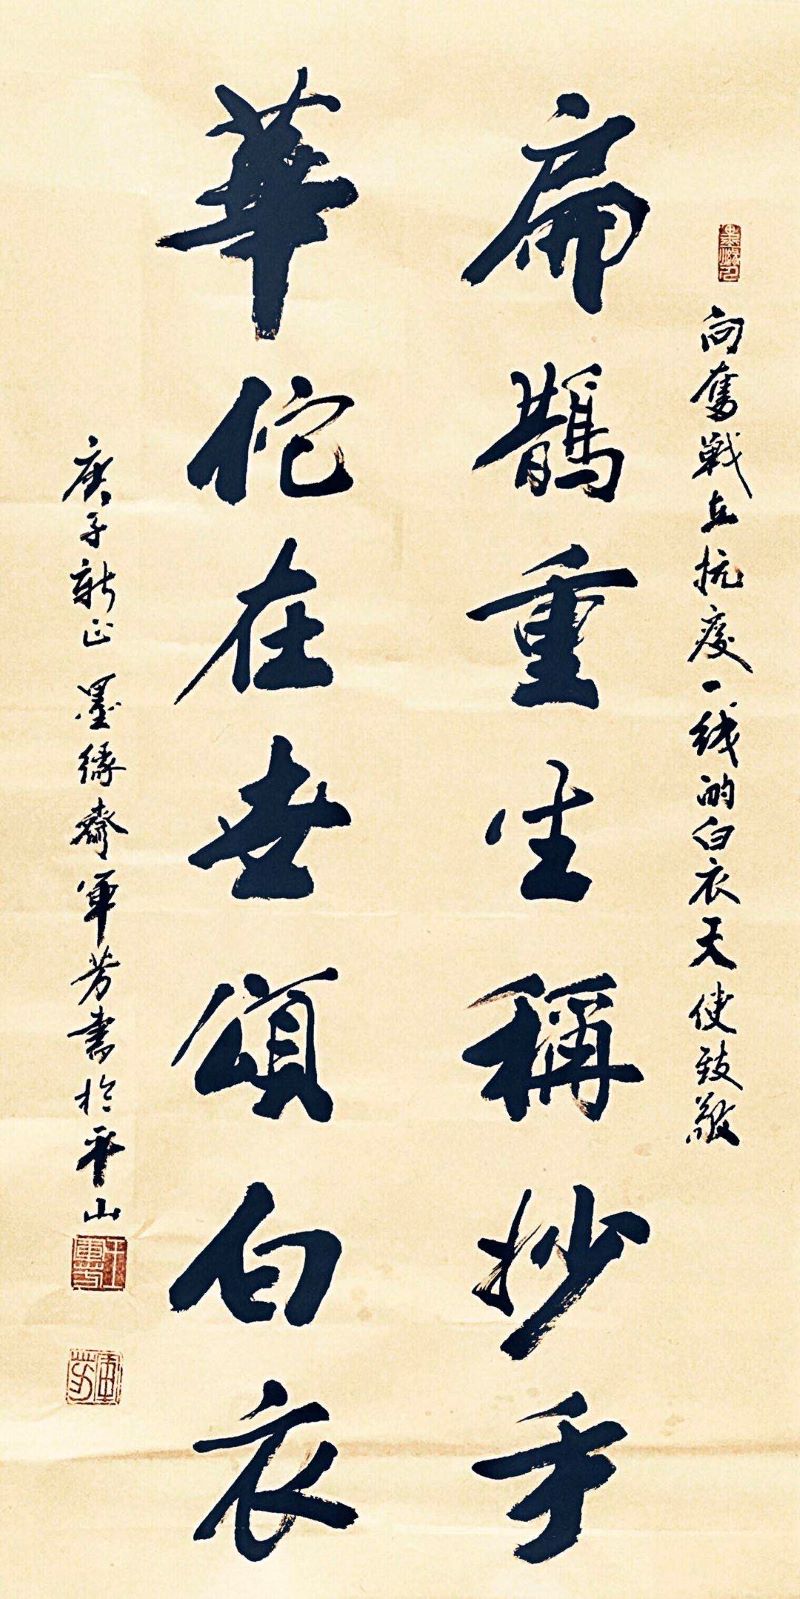 向奮戰在抗疫一线的白衣天使致敬
扁鵲重生稱抄手
華佗在世頌白衣
庚子新正 墨缘齋軍芳書於平山
王軍芳
軍芳